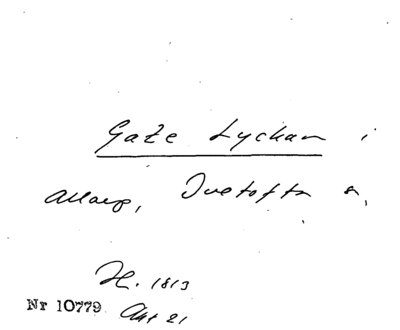 Gate Lyckan i
Allarp, Duetofta s,
H. 1813
Nr 10779 Akt 21